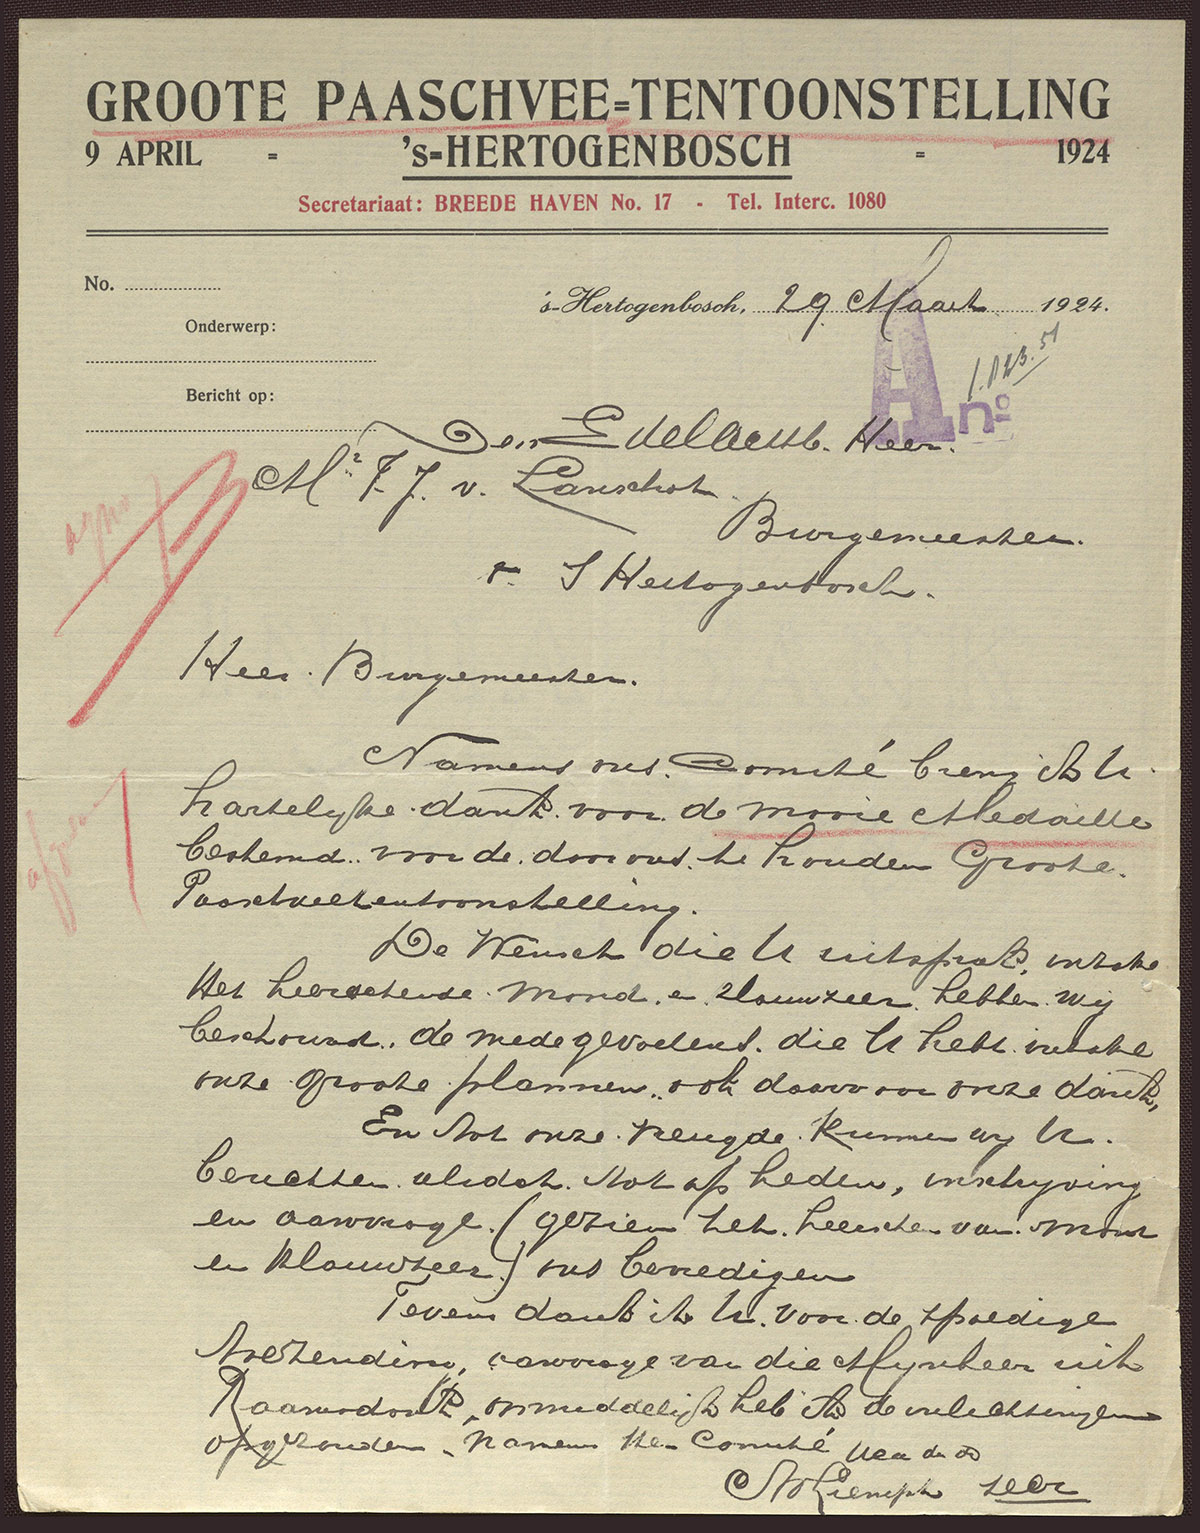 GROOTE PAASCHVEE=TENTOONSTELLING
9 APRIL - 's=HERTOGENBOSCH - 1924
Secretariaat: BREEDE HAVEN No. 17 - Tel. Interc. 1080
No.
's-Hertogenbosch, 29 Maart 1924.
Onderwerp:
A no
Bericht op:
Den Edelachtb. Heer.
Mr F. J. v. Lanschot
Burgemeester.
S Hertogenbosch.
Heer. Burgemeester.
Namens ons. Comité breng ik U.
hartelijke dank. voor de mooie Medaille
bestemd. voor de. door ons. te houden Groote.
Paaschveetentoonstelling.
De Wensch die U uitsprak, inzake
Het heerschende mond. en Klauwzeer hebben wij
beschouwd. de medegevoelens. die U hebt inzake
onze groote plannen, ook daarvoor onze dank,
En tot onze vreugde kunnen wij U.
berichten. tot op heden, inschrijving
en aanvrage. (gezien het. heerschen van. Mond
en Klauwzeer) ons bevredigen
Tevens dank ik U. voor de spoedige
toezending, aanvrage van die Mijnheer uit
Raamsdonk, onmiddelijk heb ik de inlichtingen
opgezonden. Namens Het Comité